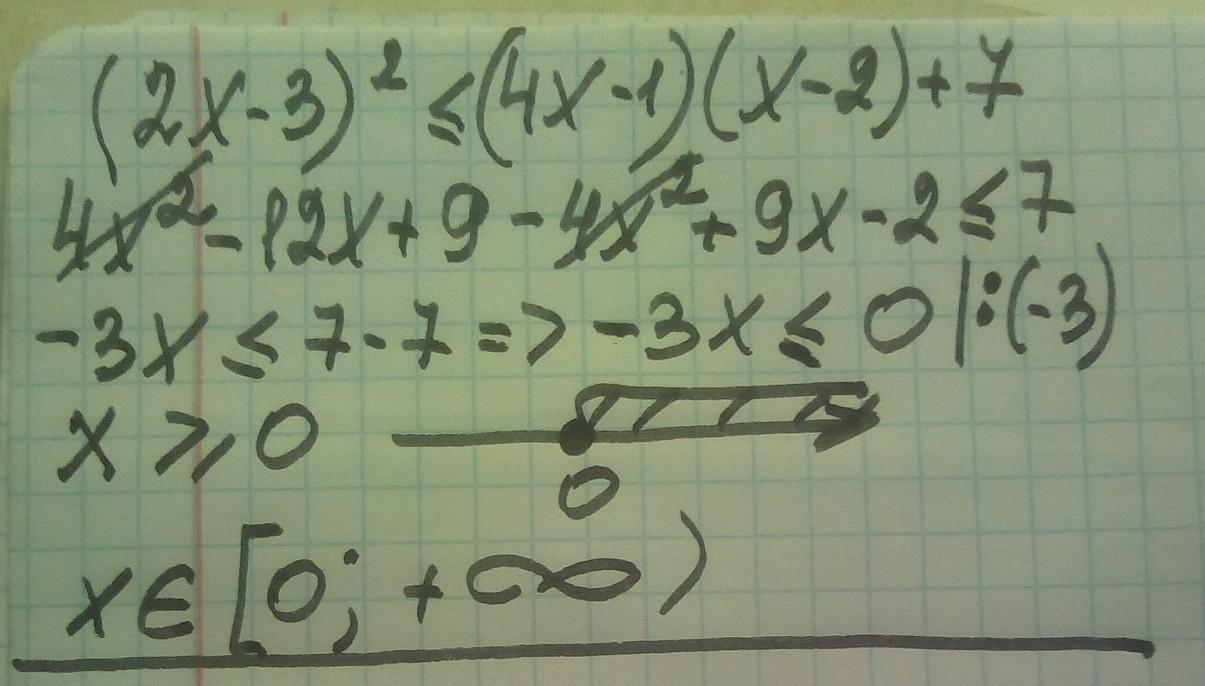 (2x-3)² ≤ (4x-1)(x-2)+7
4x²-12x+9-4x²+9x-2≤7
-3x ≤ 7-7 => -3x ≤ 0 |:(-3)
x ≥ 0
0
x∈[0; +∞)